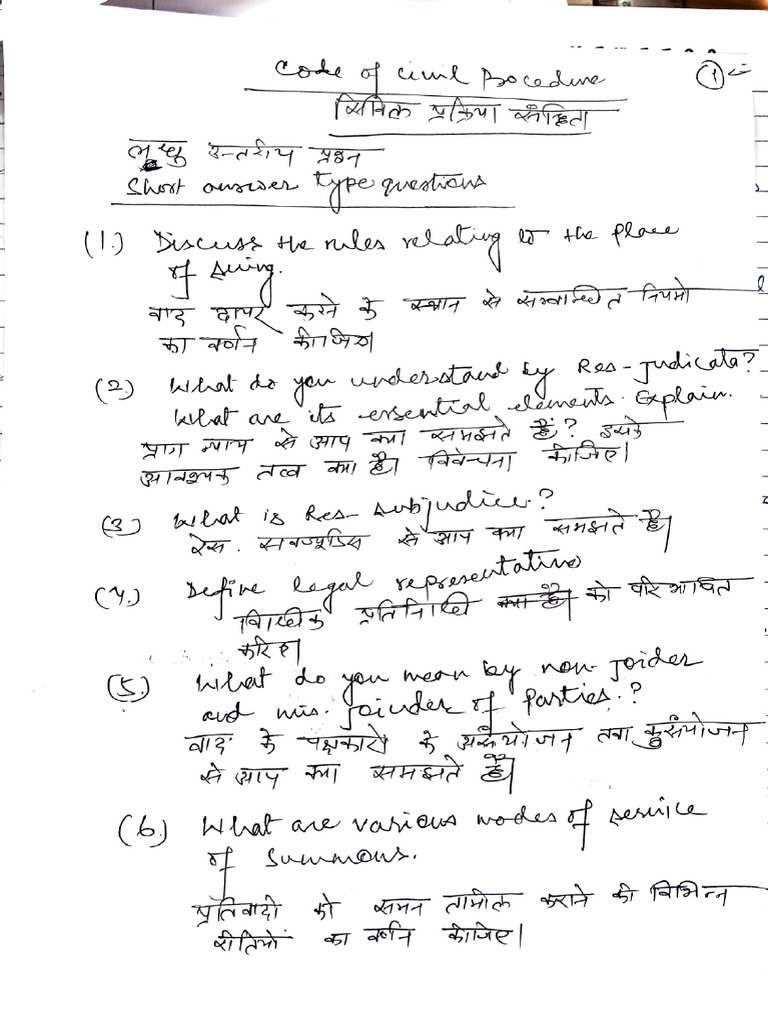 Code of Civil Procedure
(1)
सिविल प्रक्रिया संहिता
लघु उत्तरीय प्रश्न
Short answer type questions
(1.) Discuss the rules relating to the place
of suing.
वाद दायर करने के स्थान से सम्बन्धित नियमो
का वर्णन कीजिए।
(2) What do you understand by Res-Judicata?
What are its essential elements. Explain.
प्राग न्याय से आप क्या समझते हैं? इसके
आवश्यक तत्व क्या है। विवेचना कीजिए।
(3) What is Res-subjudice.?
रेस. सबज्यूडिस से आप क्या समझते है।
(4.) Define legal representative
विधिक प्रतिनिधि क्या है। को परिभाषित
करिए।
(5.) What do you mean by non-joider
and mis. joinder of parties.?
वाद के पक्षकारो के असंयोजन तथा कुसंयोजन
से आप क्या समझते हैं।
(6.) What are various modes of service
of summons.
प्रतिवादी को समन तामील कराने की विभिन्न
रीतियों का वर्णन कीजिए।